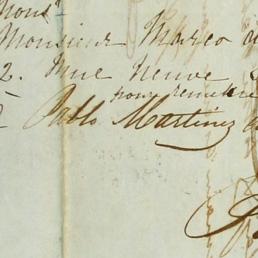 Mons
Monsieur Marco
2. Rue Neuve
pour remettre
Pablo Martinez